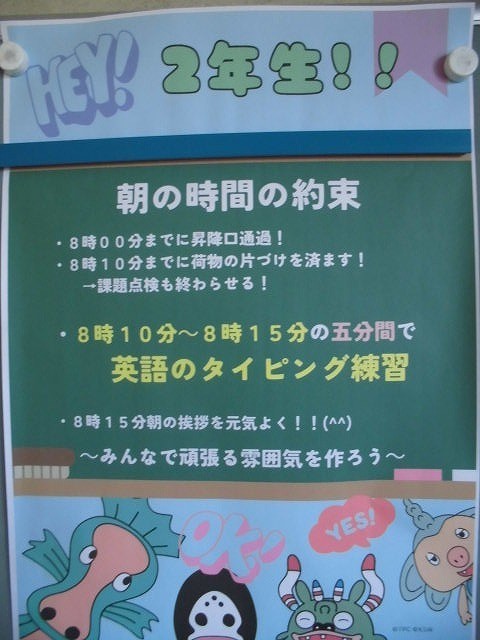 HEY!
2年生!!
朝の時間の約束
・8時00分までに昇降口通過!
・8時10分までに荷物の片づけを済ます!
→課題点検も終わらせる!
・8時10分〜8時15分の五分間で
英語のタイピング練習
・8時15分朝の挨拶を元気よく!!(^^)
〜みんなで頑張る雰囲気を作ろう〜
OK!
YES!